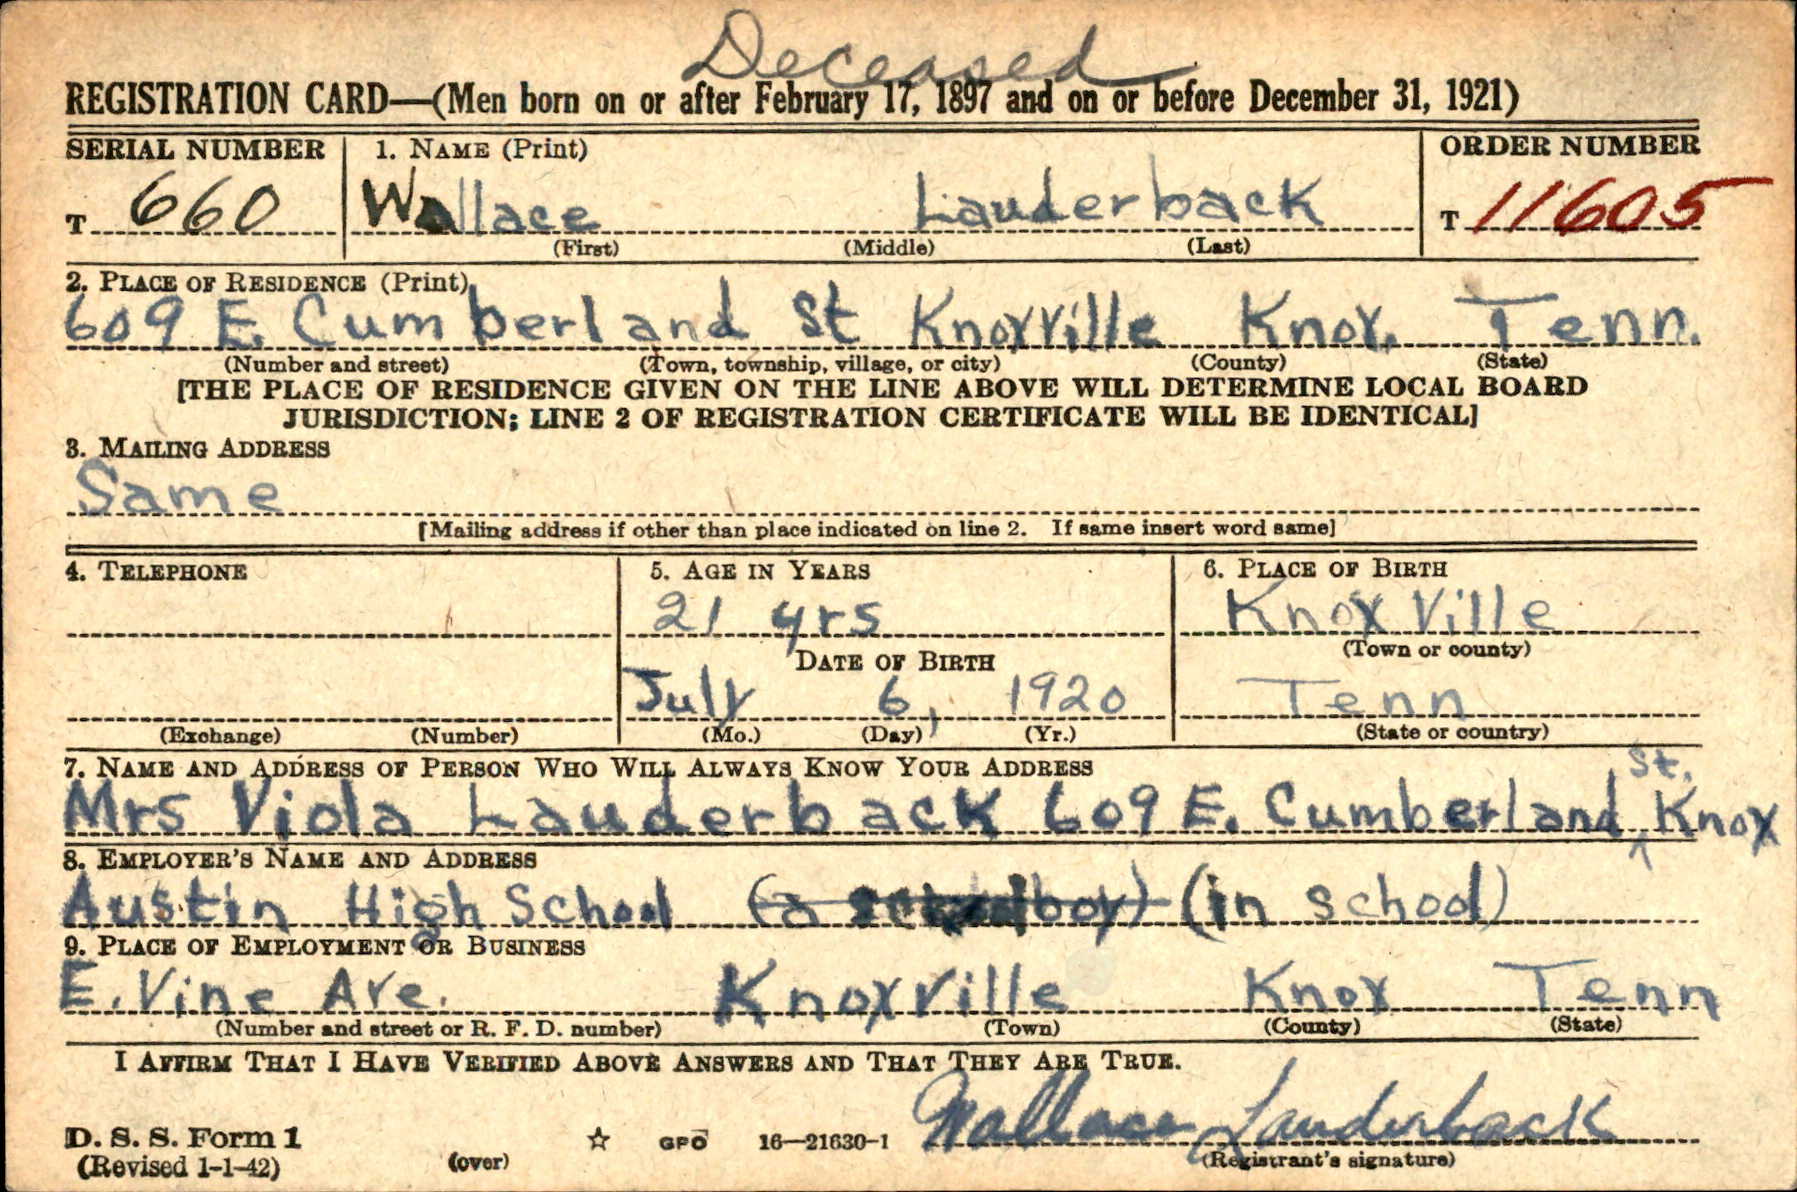 Deceased
REGISTRATION CARD—(Men born on or after February 17, 1897 and on or before December 31, 1921)
SERIAL NUMBER 1. NAME (Print) ORDER NUMBER
T 660 Wallace Lauderback T 11605
(First) (Middle) (Last)
2. PLACE OF RESIDENCE (Print)
609 E. Cumberland St Knoxville Knox, Tenn.
(Number and street) (Town, township, village, or city) (County) (State)
[THE PLACE OF RESIDENCE GIVEN ON THE LINE ABOVE WILL DETERMINE LOCAL BOARD
JURISDICTION; LINE 2 OF REGISTRATION CERTIFICATE WILL BE IDENTICAL]
3. MAILING ADDRESS
Same
[Mailing address if other than place indicated on line 2. If same insert word same]
4. TELEPHONE 5. AGE IN YEARS 6. PLACE OF BIRTH
21 yrs Knoxville
DATE OF BIRTH (Town or county)
July 6, 1920 Tenn
(Exchange) (Number) (Mo.) (Day) (Yr.) (State or country)
7. NAME AND ADDRESS OF PERSON WHO WILL ALWAYS KNOW YOUR ADDRESS
Mrs Viola Lauderback 609 E. Cumberland St. Knox
8. EMPLOYER'S NAME AND ADDRESS
Austin High School (a schoolboy) (in school)
9. PLACE OF EMPLOYMENT OR BUSINESS
E. Vine Ave. Knoxville Knox Tenn
(Number and street or R. F. D. number) (Town) (County) (State)
I AFFIRM THAT I HAVE VERIFIED ABOVE ANSWERS AND THAT THEY ARE TRUE.
D. S. S. Form 1 GPO 16—21630-1 Wallace Lauderback
(Revised 1-1-42) (over) (Registrant's signature)